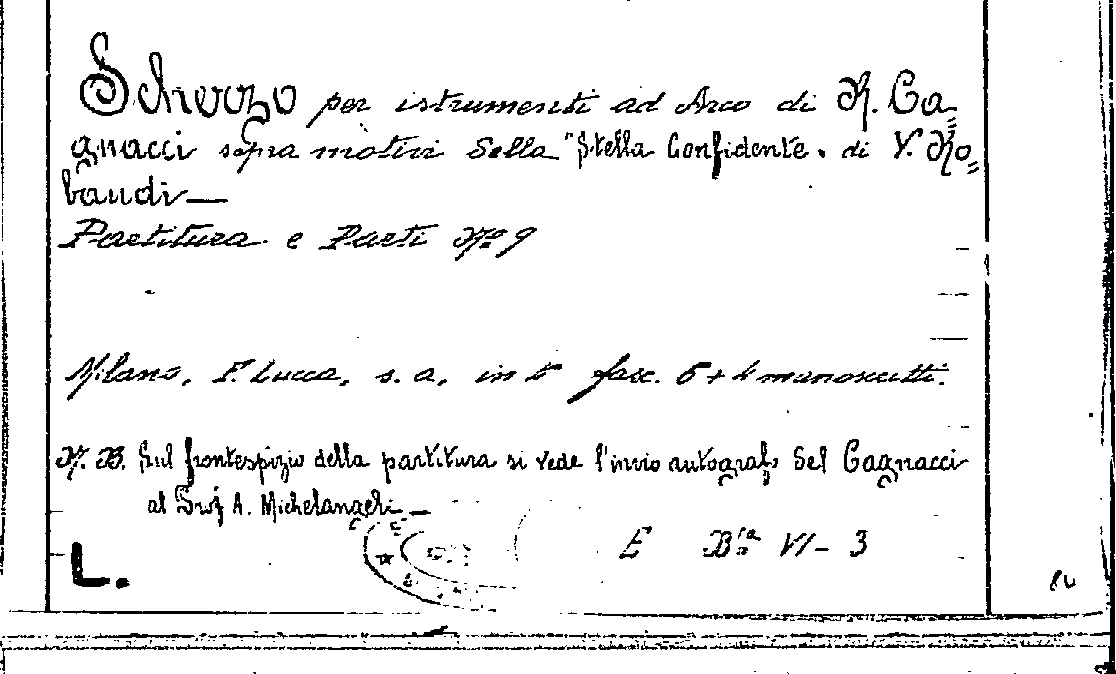 Scherzo per istrumenti ad Arco di R. Ca=
gnacci sopra motivi della "Stella Confidente" di V. Ro=
baudi—
Partitura e Parti Nº 9
Milano, F. Lucca, s. a. in 4º fasc. 5 + 4 manoscritti.
N. B. Sul frontespizio della partitura si vede l'invio autografo del Cagnacci
al Prof A. Michelangeli—
E Bta VI-3
L.